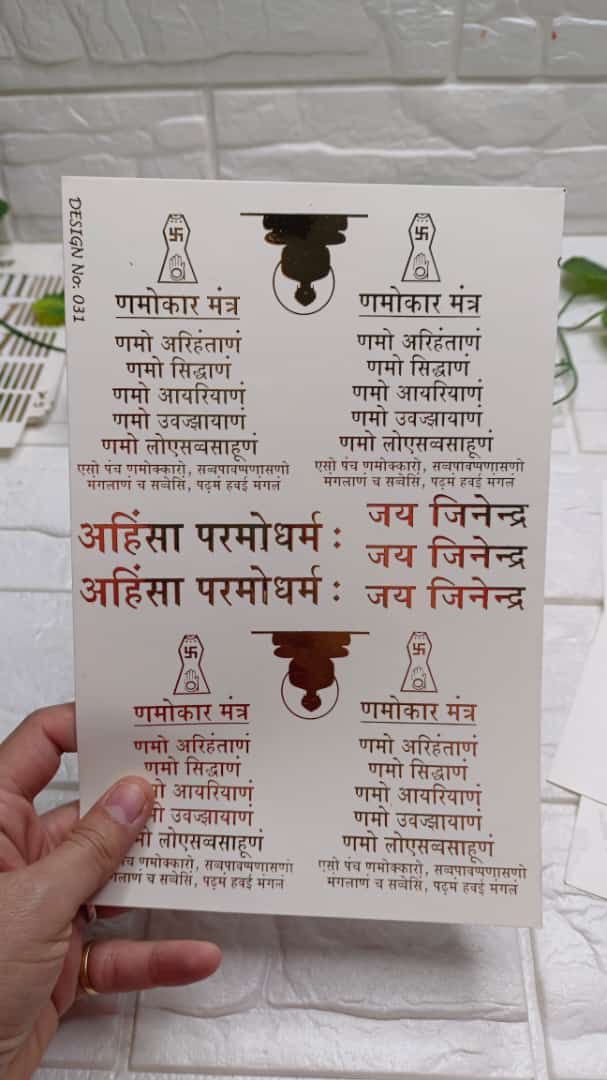 DESIGN No. 031
णमोकार मंत्र
णमो अरिहंताणं
णमो सिद्धाणं
णमो आयरियाणं
णमो उवज्झायाणं
णमो लोएसव्वसाहूणं
एसो पंच णमोक्कारो, सव्वपावप्पणासणो
मंगलाणं च सव्वेसिं, पढ़मं हवई मंगलं
णमोकार मंत्र
णमो अरिहंताणं
णमो सिद्धाणं
णमो आयरियाणं
णमो उवज्झायाणं
णमो लोएसव्वसाहूणं
एसो पंच णमोक्कारो, सव्वपावप्पणासणो
मंगलाणं च सव्वेसिं, पढ़मं हवई मंगलं
अहिंसा परमोधर्म :
अहिंसा परमोधर्म :
जय जिनेन्द्र
जय जिनेन्द्र
जय जिनेन्द्र
णमोकार मंत्र
णमो अरिहंताणं
णमो सिद्धाणं
आयरियाणं
उवज्झायाणं
लोएसव्वसाहूणं
णमोक्कारो, सव्वपावप्पणासणो
च सव्वेसिं, पढ़मं हवई मंगलं
णमोकार मंत्र
णमो अरिहंताणं
णमो सिद्धाणं
णमो आयरियाणं
णमो उवज्झायाणं
णमो लोएसव्वसाहूणं
एसो पंच णमोक्कारो, सव्वपावप्पणासणो
मंगलाणं च सव्वेसिं, पढ़मं हवई मंगलं